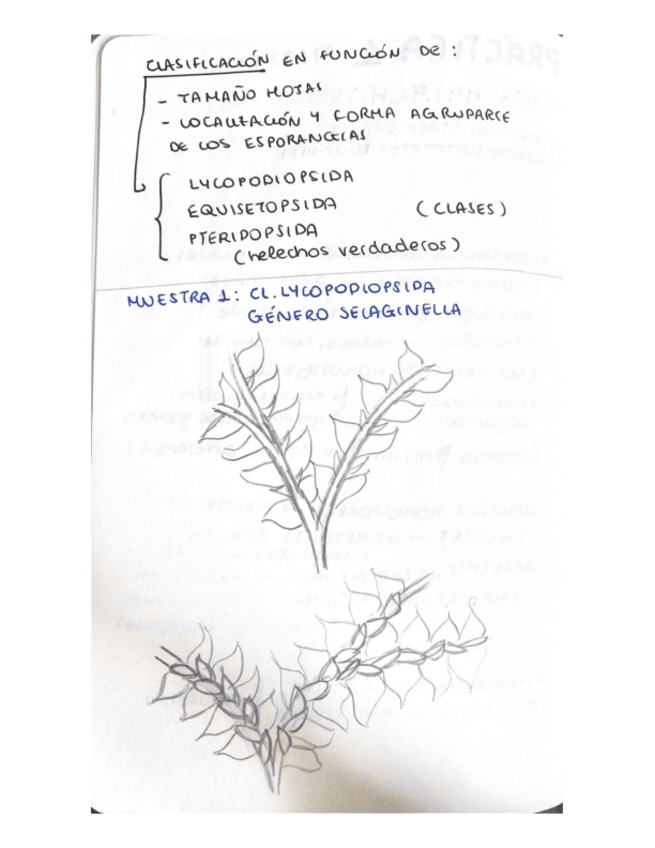 CLASIFICACIÓN EN FUNCIÓN DE :
- TAMAÑO HOJAS
- LOCALIZACIÓN Y FORMA AGRUPARSE
DE LOS ESPORANGIAS
LYCOPODIOPSIDA
EQUISETOPSIDA (CLASES)
PTERIDOPSIDA
(helechos verdaderos)
MUESTRA 1: CL. LYCOPODIOPSIDA
GÉNERO SELAGINELLA